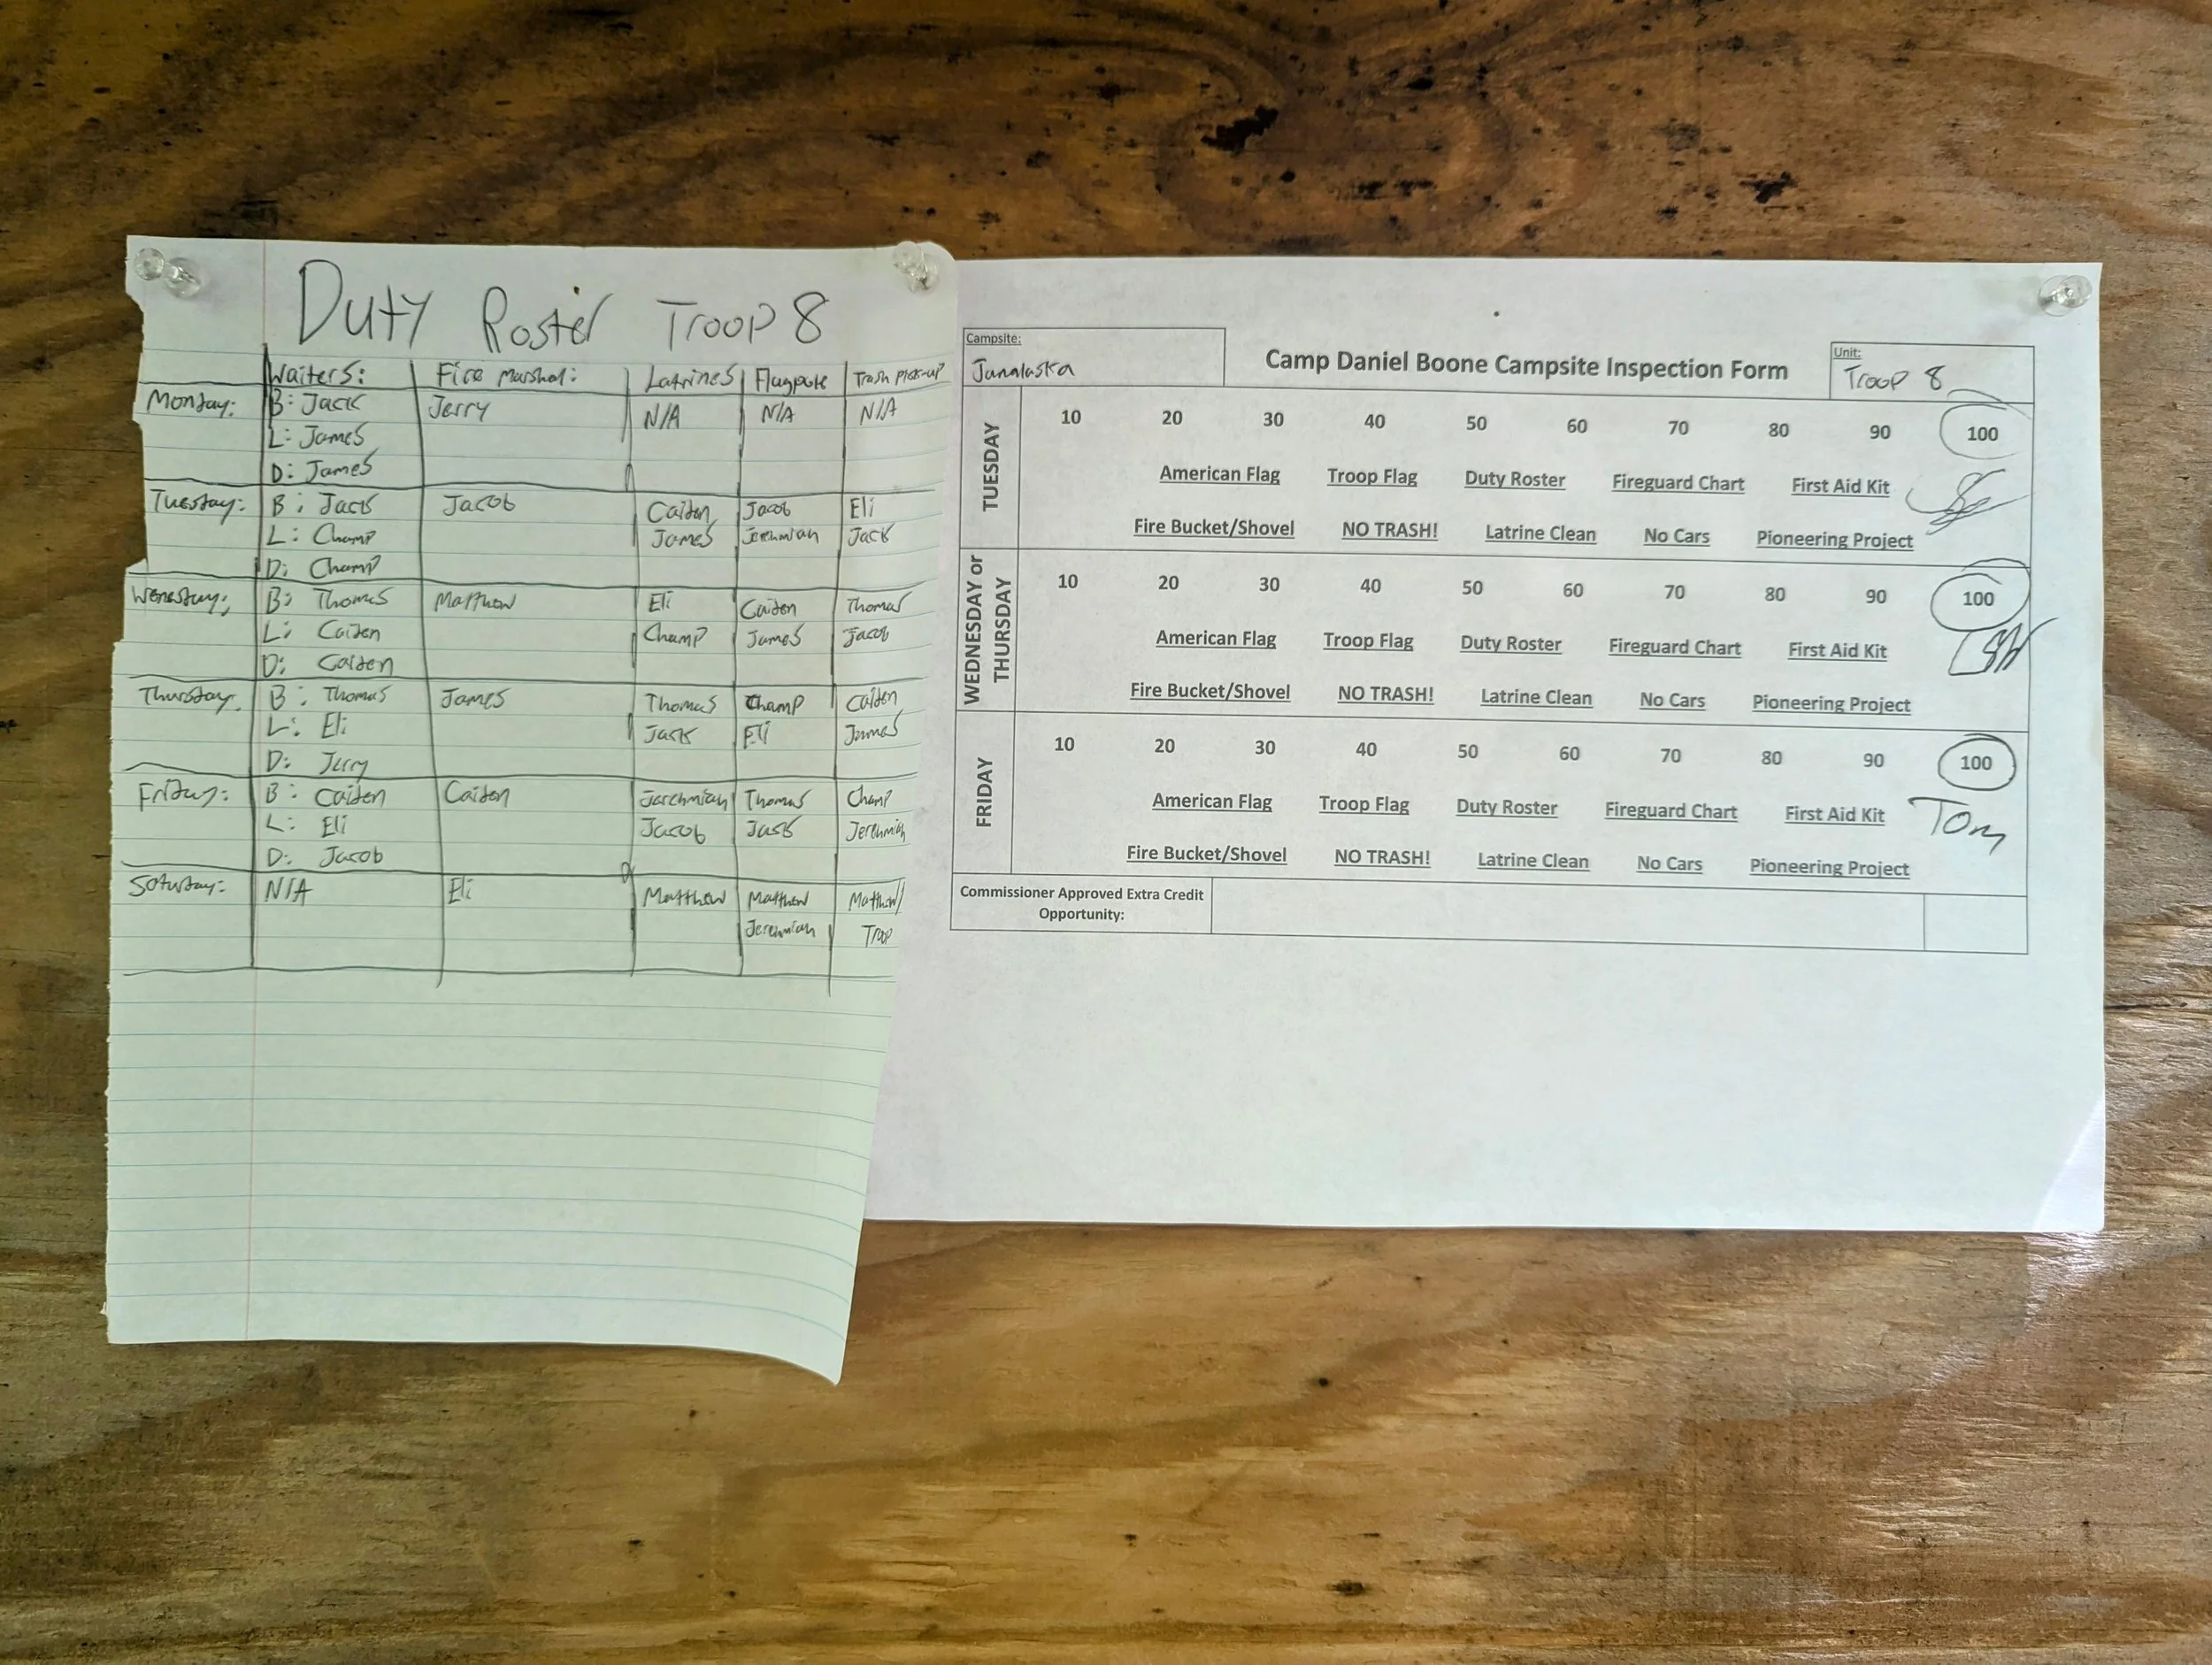 Duty Roster Troop 8
Waiters: Fire Marshal: Latrines Flagpole Trash Pick-up
Monday: B: Jack Jerry N/A N/A N/A
L: James
D: James
Tuesday: B: Jack Jacob Caiden Jacob Eli
L: Champ James Jerehmiah Jack
D: Champ
Wenesday: B: Thomas Matthew Eli Caiden Thomas
L: Caiden Champ James Jacob
D: Caiden
Thursday: B: Thomas James Thomas Champ Caiden
L: Eli Jack Eli James
D: Jerry
Friday: B: Caiden Caiden Jerehmiah Thomas Champ
L: Eli Jacob Jack Jerehmiah
D: Jacob
Saturday: N/A Eli Matthew Matthew Matthew
Jerehmiah Troop
Campsite:
Junalaska
Camp Daniel Boone Campsite Inspection Form
Unit:
Troop 8
TUESDAY
10 20 30 40 50 60 70 80 90 100
American Flag Troop Flag Duty Roster Fireguard Chart First Aid Kit
Fire Bucket/Shovel NO TRASH! Latrine Clean No Cars Pioneering Project
WEDNESDAY or
THURSDAY
10 20 30 40 50 60 70 80 90 100
American Flag Troop Flag Duty Roster Fireguard Chart First Aid Kit
Fire Bucket/Shovel NO TRASH! Latrine Clean No Cars Pioneering Project
FRIDAY
10 20 30 40 50 60 70 80 90 100
American Flag Troop Flag Duty Roster Fireguard Chart First Aid Kit
Tom
Fire Bucket/Shovel NO TRASH! Latrine Clean No Cars Pioneering Project
Commissioner Approved Extra Credit
Opportunity: